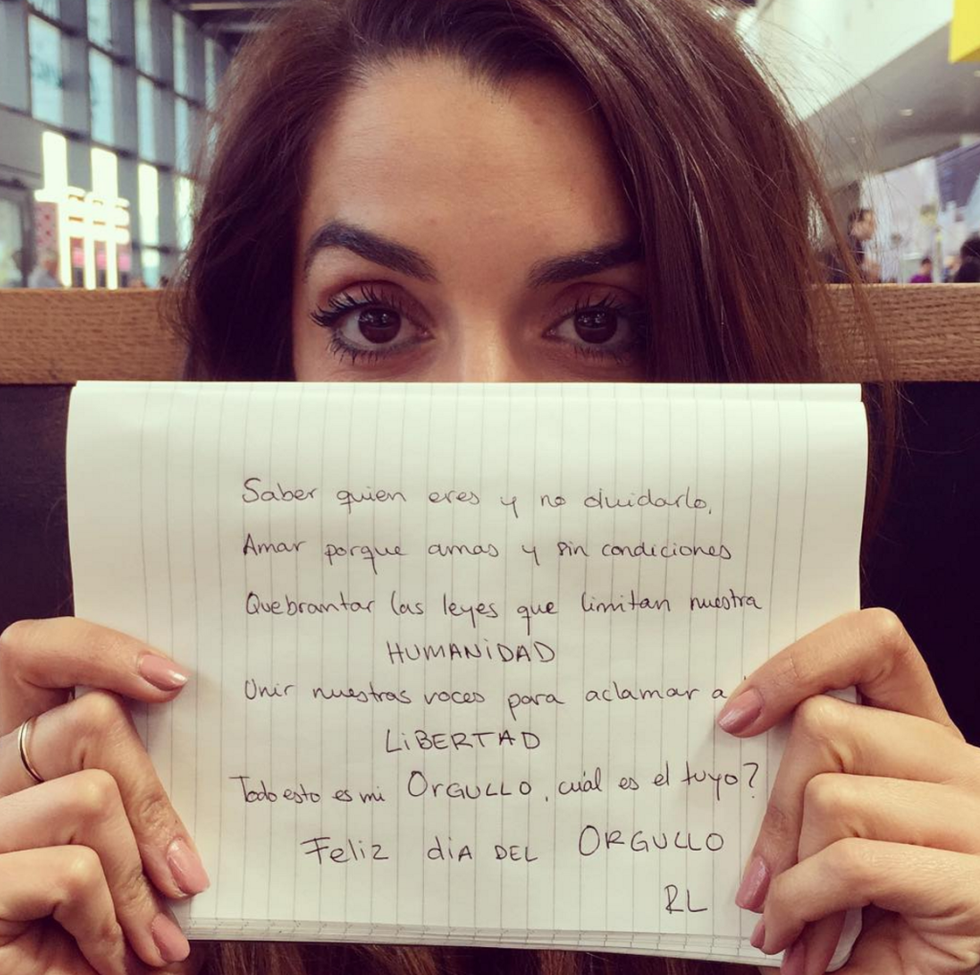 Saber quien eres y no olvidarlo,
Amar porque amas y sin condiciones
Quebrantar las leyes que limitan nuestra
HUMANiDAD
Unir nuestras voces para aclamar a
LiBERTAD
Todo esto es mi ORGULLO, cuál es el tuyo?
Feliz diA DEL ORGULLO
RL